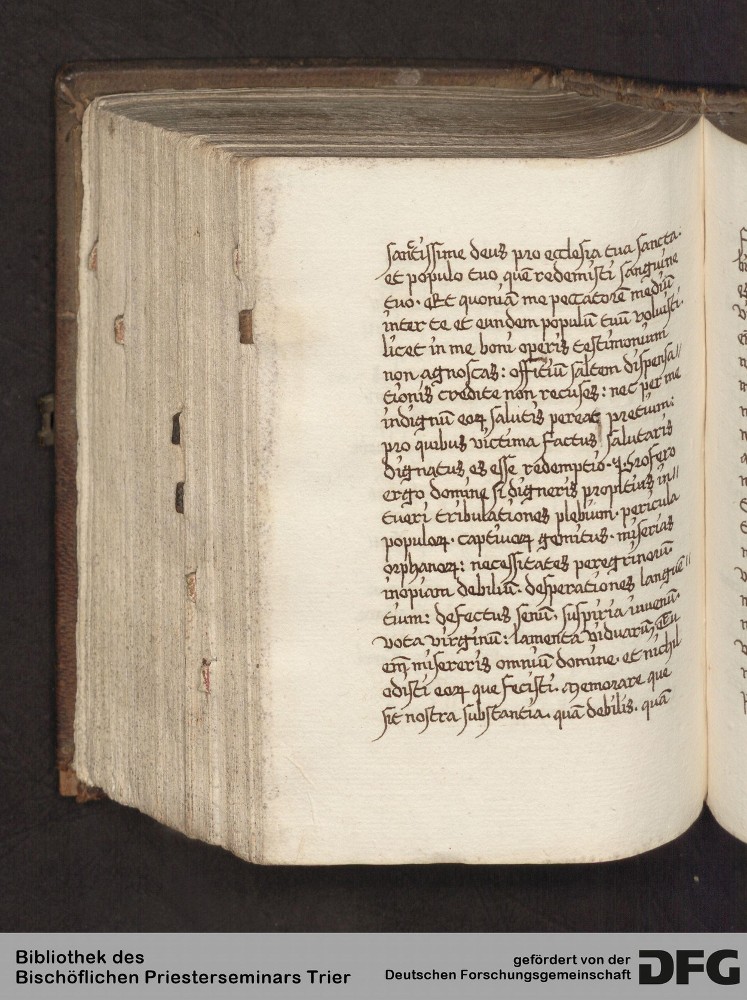 sanctissime deus pro ecclesia tua sancta.
et populo tuo quē redemisti sanguine
tuo. Et quoniā me peccatorē mediū
inter te et eundem populū tuū voluisti.
licet in me boni operis testimonium
non agnoscas: officiū saltem dispensa//
tionis credite non recuses: nec per me
indignū eoꝝ salutis pereat pretium:
pro quibus victima factus salutaris
dignatus es esse redemptio. Profero
ergo domine si digneris propitius in//
tueri tribulationes plebium. pericula
populoꝝ. captiuoꝝ gemitus. miserias
orphanoꝝ: necessitates peregrinorū.
inopiam debiliū. desperationes languē//
tium: defectus senū. suspiria iuuenū.
vota virginū: lamenta viduarū. Tu
em̄ misereris omniū domine. et nichil
odisti eoꝝ que fecisti. Memorare que
sit nostra substantia. quā debilis. quā
Bibliothek des
Bischöflichen Priesterseminars Trier
gefördert von der
Deutschen Forschungsgemeinschaft DFG